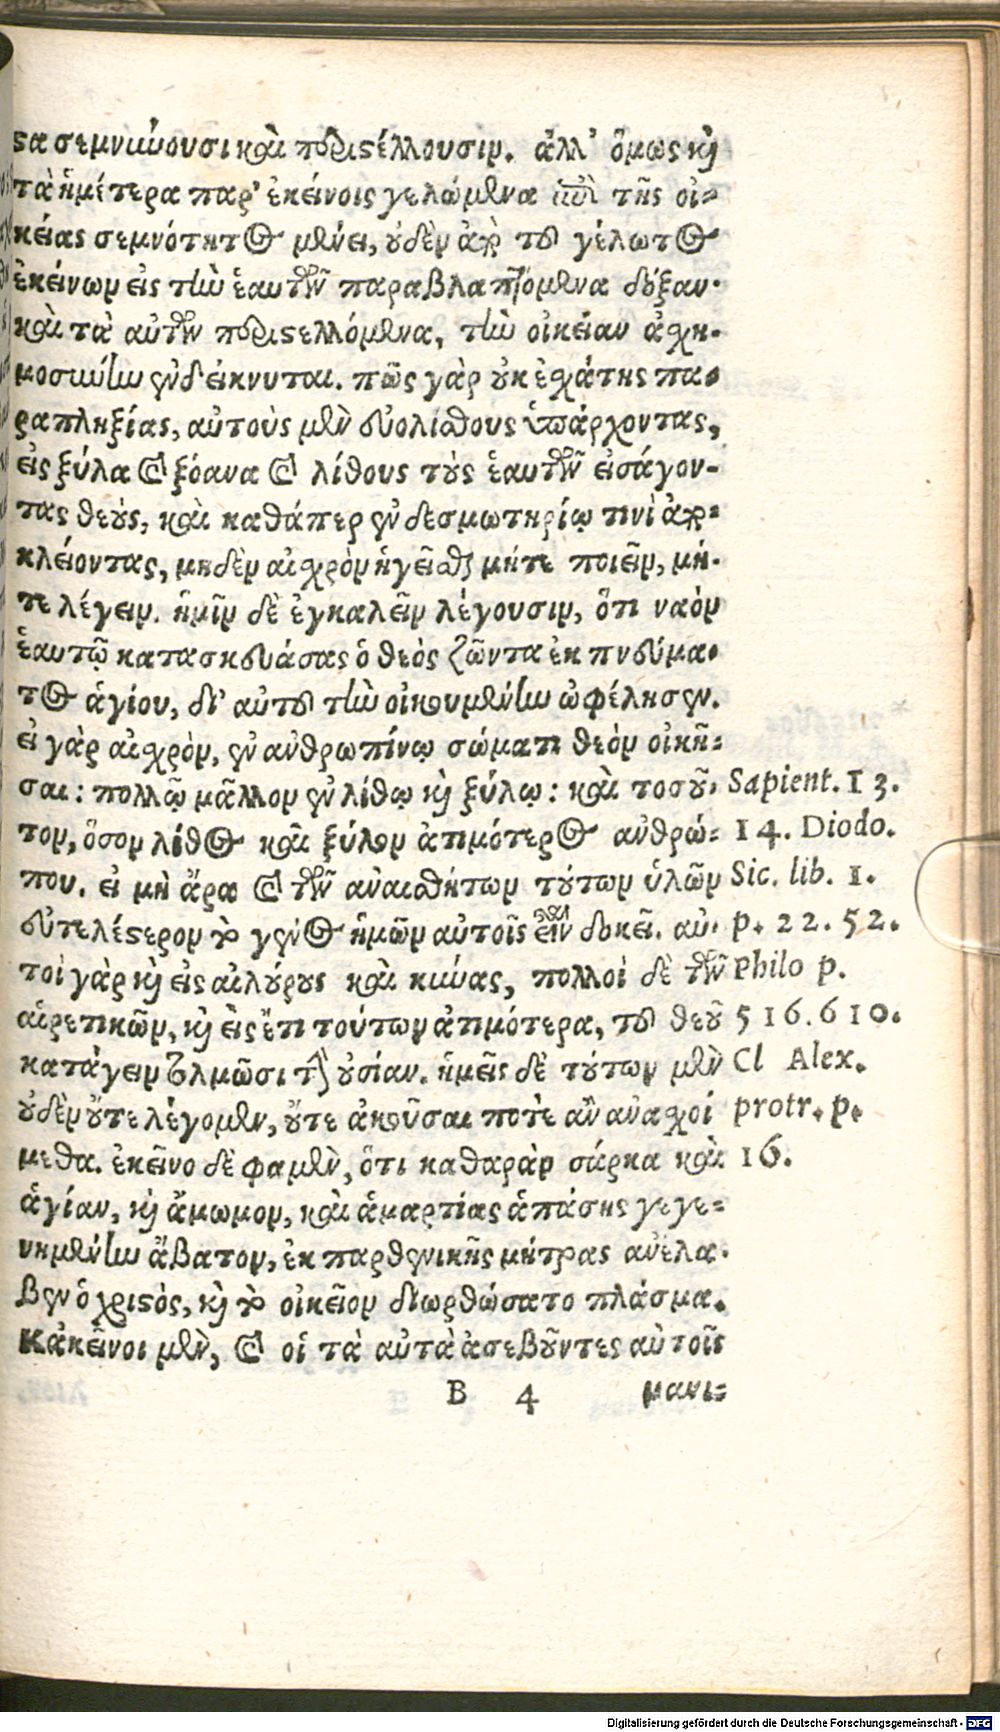 στα σεμνύνουσι καὶ περιστέλλουσιν. ἀλλ' ὅμως καὶ
τὰ ἡμέτερα παρ' ἐκείνοις γελώμενα ἐπὶ τῆς οἰ-
κείας σεμνότητος μένει, οὐδὲν ἀπὸ τοῦ γέλωτος
ἐκείνων εἰς τὴν ἑαυτῶν παραβλαπτόμενα δόξαν.
καὶ τὰ αὐτῶν περιστελλόμενα, τὴν οἰκείαν ἀσχη-
μοσύνην ἐνδείκνυται. πῶς γὰρ οὐκ ἐσχάτης πα-
ραπληξίας, αὐτοὺς μὲν εὐολίσθους ὑπάρχοντας,
εἰς ξύλα καὶ ξόανα καὶ λίθους τοὺς ἑαυτῶν εἰσάγον-
τας θεοὺς, καὶ καθάπερ ἐν δεσμωτηρίῳ τινὶ ἀπο-
κλείοντας, μηδὲν αἰσχρὸν ἡγεῖσθαι μήτε ποιεῖν, μή-
τε λέγειν. ἡμῖν δὲ ἐγκαλεῖν λέγουσιν, ὅτι ναὸν
ἑαυτῷ κατασκευάσας ὁ θεὸς ζῶντα ἐκ πνεύμα-
τος ἁγίου, δι' αὐτοῦ τὴν οἰκουμένην ὠφέλησεν.
εἰ γὰρ αἰσχρὸν, ἐν ἀνθρωπίνῳ σώματι θεὸν οἰκῆ-
σαι: πολλῷ μᾶλλον ἐν λίθῳ καὶ ξύλῳ: καὶ τοσοῦ- Sapient. 13.
τον, ὅσον λίθος καὶ ξύλον ἀτιμότερος ἀνθρώ- 14. Diodo.
που. εἰ μὴ ἄρα καὶ τῶν ἀναισθήτων τούτων ὑλῶν Sic. lib. 1.
εὐτελέστερον τὸ γένος ἡμῶν αὐτοῖς εἶναι δοκεῖ. αὐ- p. 22. 52.
τοὶ γὰρ καὶ εἰς αἰλούρους καὶ κύνας, πολλοὶ δὲ τῶν Philo p.
αἱρετικῶν, καὶ εἰς ἔτι τούτων ἀτιμότερα, τοῦ θεοῦ 516. 610.
κατάγειν τολμῶσι τὴν οὐσίαν. ἡμεῖς δὲ τούτων μὲν Cl Alex.
οὐδὲν οὔτε λέγομεν, οὔτε ἀκοῦσαι ποτὲ ἂν ἀνασχοί protr. p.
μεθα. ἐκεῖνο δὲ φαμὲν, ὅτι καθαρὰν σάρκα καὶ 16.
ἁγίαν, καὶ ἄμωμον, καὶ ἁμαρτίας ἁπάσης γεγε-
νημένην ἄβατον, ἐκ παρθενικῆς μήτρας ἀνέλα-
βεν ὁ χριστὸς, καὶ τὸ οἰκεῖον διωρθώσατο πλάσμα.
Κἀκεῖνοι μὲν, καὶ οἱ τὰ αὐτὰ ἀσεβοῦντες αὐτοῖς
B 4 μανι-
Digitalisierung gefördert durch die Deutsche Forschungsgemeinschaft - DFG